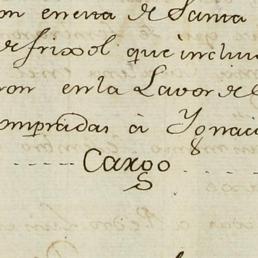 on eneva de Santa
de frixol que inclui
ron en la Lavor de
compradas à Ygnaci
Cargo